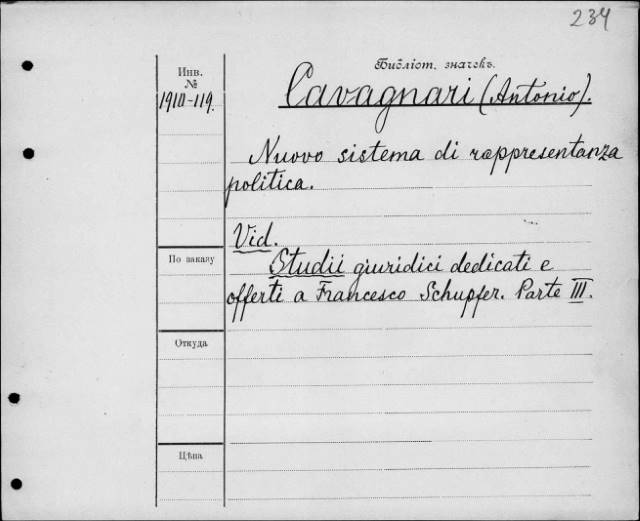 234
Библіот. значекъ.
Инв.
№
1910-119.
Cavagnari (Antonio).
Nuovo sistema di rappresentanza
politica.
Vid.
По заказу
Studii giuridici dedicati e
offerti a Francesco Schupfer. Parte III.
Откуда
Цѣна